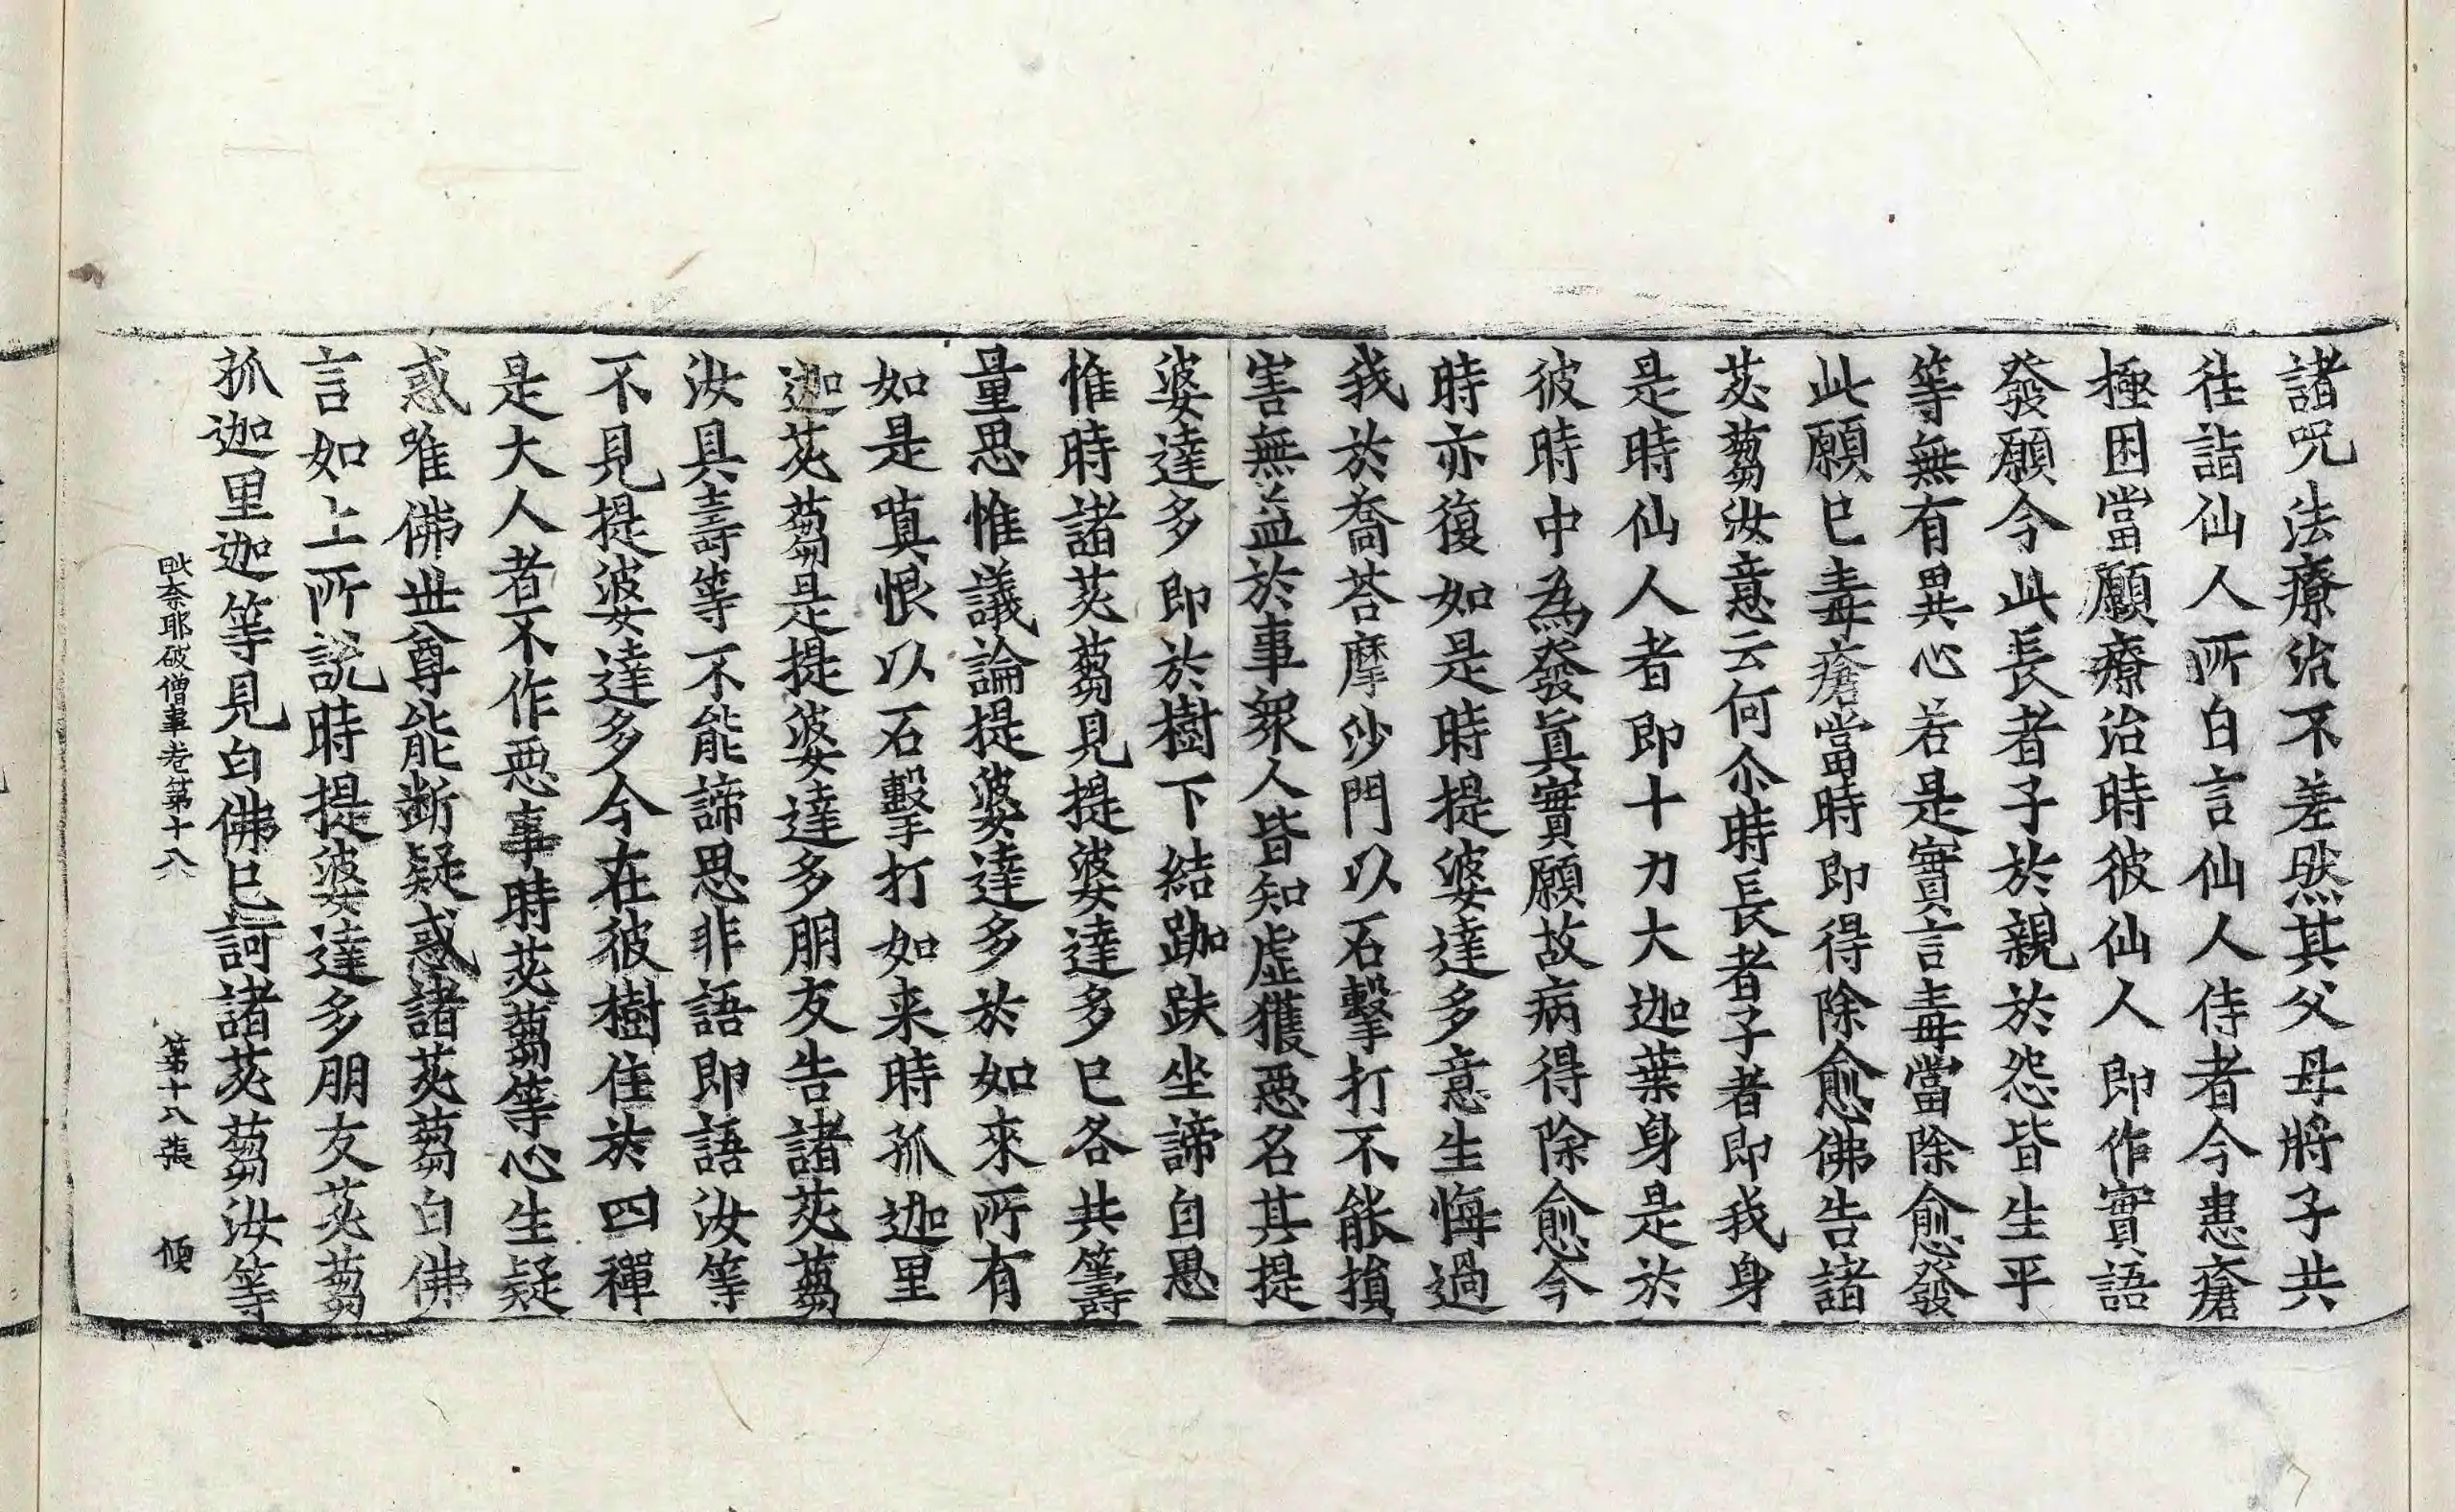 諸呪法療治不差然其父母將子共
往詣仙人所白言仙人侍者今患瘡
極困當願療治時彼仙人即作實語
發願今此長者子於親於怨皆生平
等無有異心若是實言毒當除愈發
此願已毒瘡當時即得除愈佛告諸
苾蒭汝意云何尒時長者子者即我身
是時仙人者即十力大迦葉身是於
彼時中為發眞實願故病得除愈今
時亦復如是時提婆達多意生悔過
我於喬荅摩沙門以石擊打不能損
害無益於事衆人皆知虛獲惡名其提
婆達多即於樹下結跏趺坐諦自思
惟時諸苾蒭見提婆達多已各共籌
量思惟議論提婆達多於如來所有
如是嗔恨以石擊打如来時孤迦里
迦苾蒭是提婆達多朋友告諸苾蒭
汝具壽等不能諦思非語即語汝等
不見提婆達多今在彼樹住於四禪
是大人者不作惡事時苾蒭等心生疑
惑唯佛世尊能断疑惑諸苾蒭白佛
言如上所說時提婆達多朋友苾蒭
孤迦里迦等見白佛已訶諸苾蒭汝等
毗奈耶破僧事卷第十八 第十八張 傾